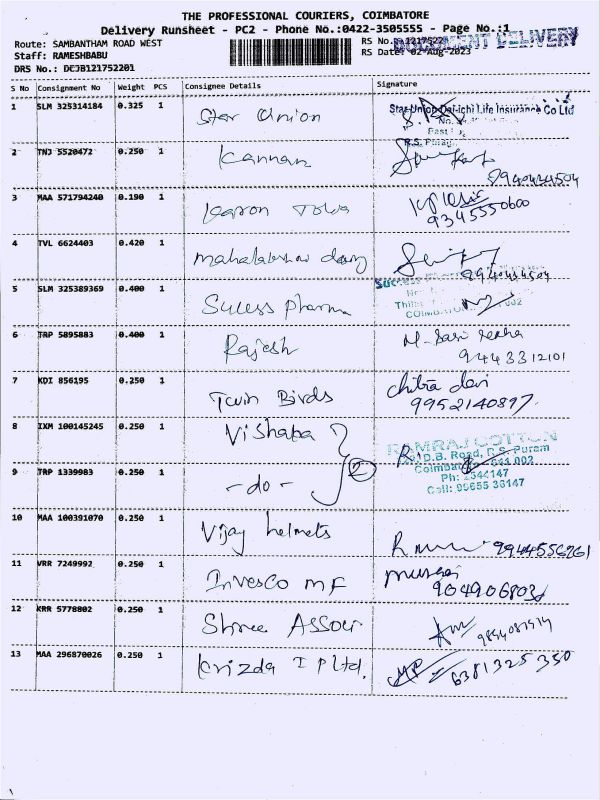 THE PROFESSIONAL COURIERS, COIMBATORE
Delivery Runsheet - PC2 - Phone No.:0422-3505555 - Page No.:1
Route: SAMBANTHAM ROAD WEST RS No.: 12175220 DOCUMENT DELIVERY
Staff: RAMESHBABU RS Date: 02-Aug-2023
DRS No.: DCJB121752201
S No Consignment No Weight PCS Consignee Details Signature
1 SLM 325314184 0.325 1 Star Union Star Union Dai-ichi Life Insurance Co Ltd
R.S. Puram,
2 TNJ 5520472 0.250 1 Kannan
9940424504
3 MAA 571794240 0.190 1 Karon
9345550600
4 TVL 6624403 0.420 1
9940424504
5 SLM 325389369 0.400 1 Sucess Pharma
6 TRP 5895883 0.400 1 Rajesh
9443312101
7 KDI 856195 0.250 1 Twin Birds Chitra devi
9952140897
8 IXM 100145245 0.250 1 Vishaka RAMRAJ COTTON
D.B. Road, R.S. Puram
Coimbatore 641 002
9 TRP 1339983 0.250 1 - do - 2 Ph: 2544147
Cell: 99655 36147
10 MAA 100391070 0.250 1 Vijay helmets
9944556261
11 VRR 7249992 0.250 1 Invesco MF Murugai
12 KRR 5778802 0.250 1 Shree
13 MAA 296870026 0.250 1 Krizda I P Ltd. 6381325350